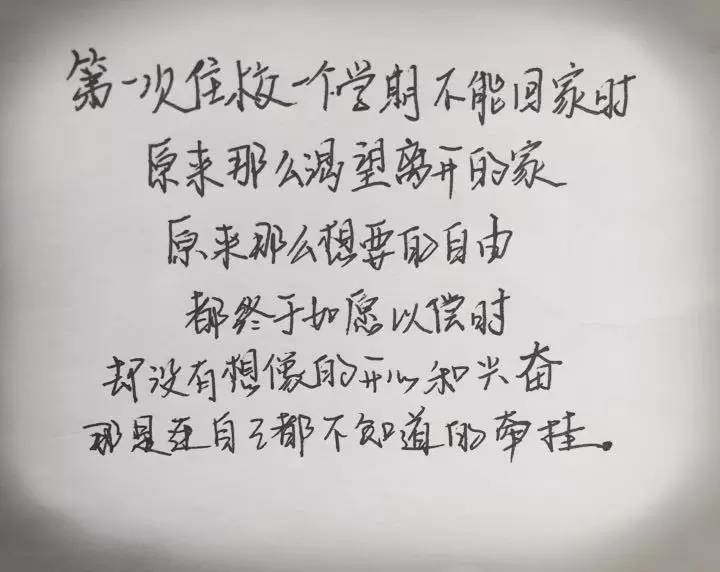 第一次住校一个学期不能回家时
原来那么渴望离开的家
原来那么想要的自由
都终于如愿以偿时
却没有想像的开心和兴奋
那是连自己都不知道的牵挂。